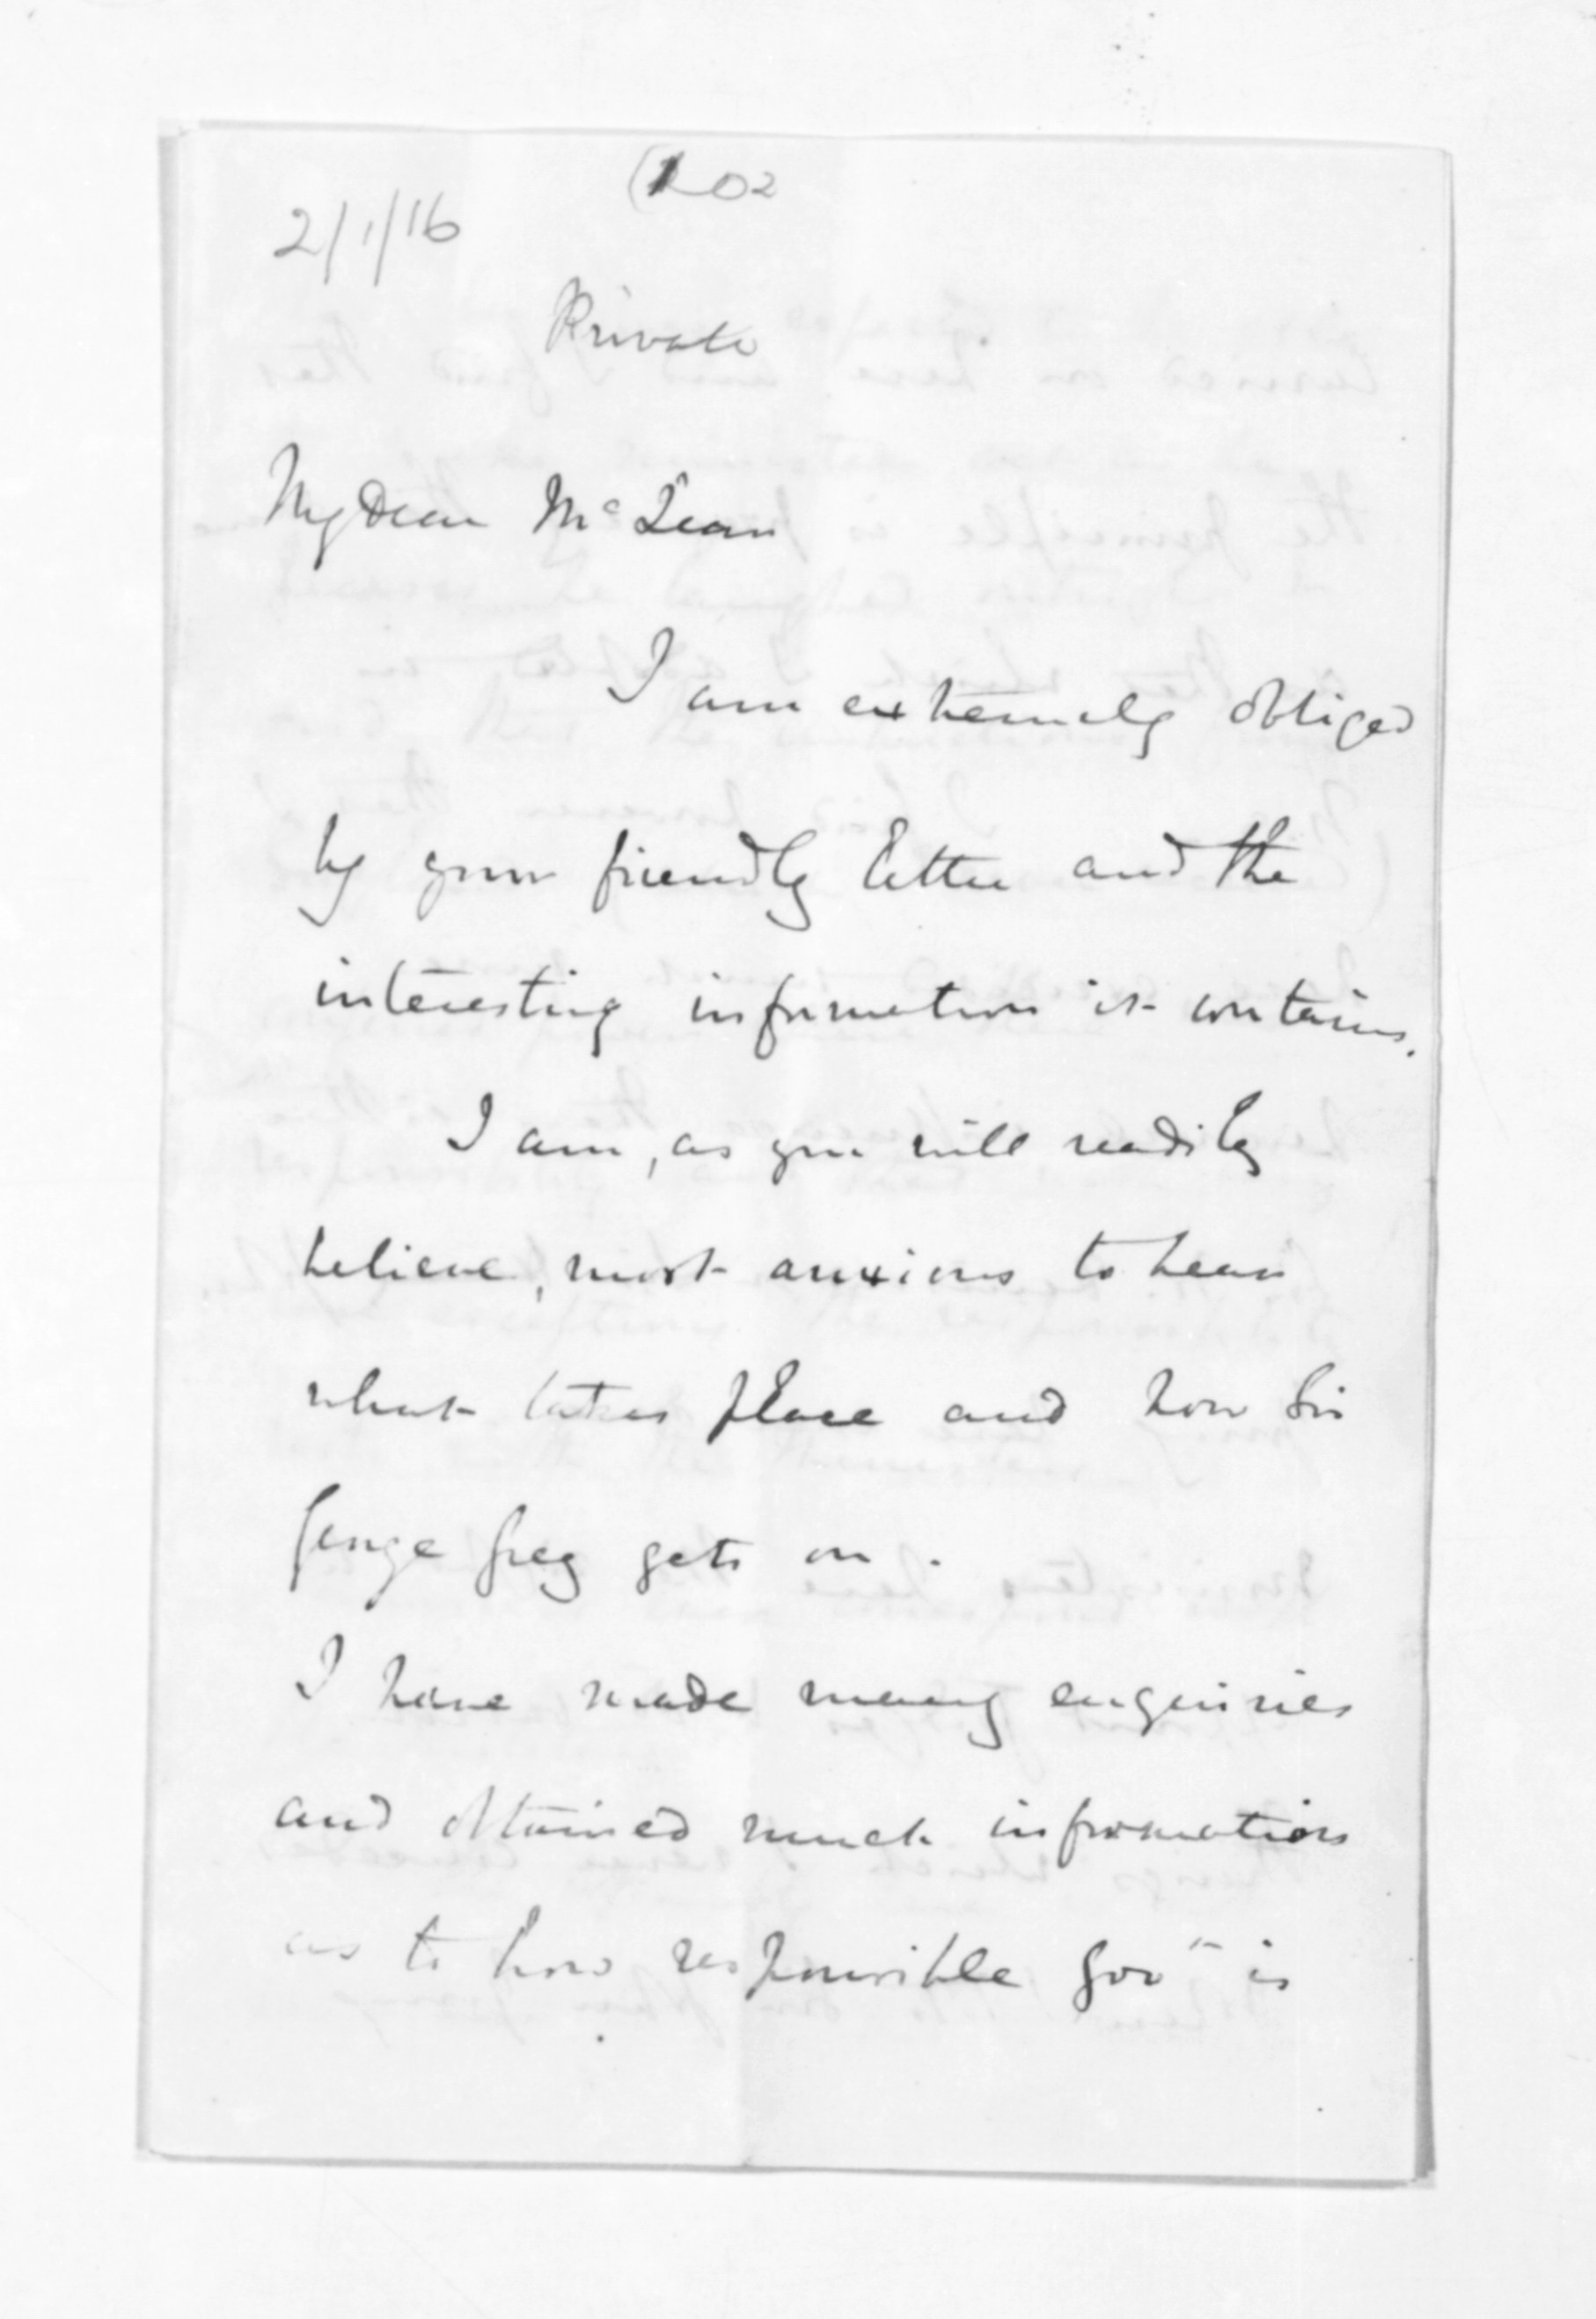 2/1/16
Private
My Dear McLean
I am extremely obliged
by your friendly letter and the
interesting information it contains.
I am, as you will readily
believe, most anxious to hear
what takes place and how Sir
George Grey gets on.
I have made many enquiries
and obtained much information
as to how responsible Govt is